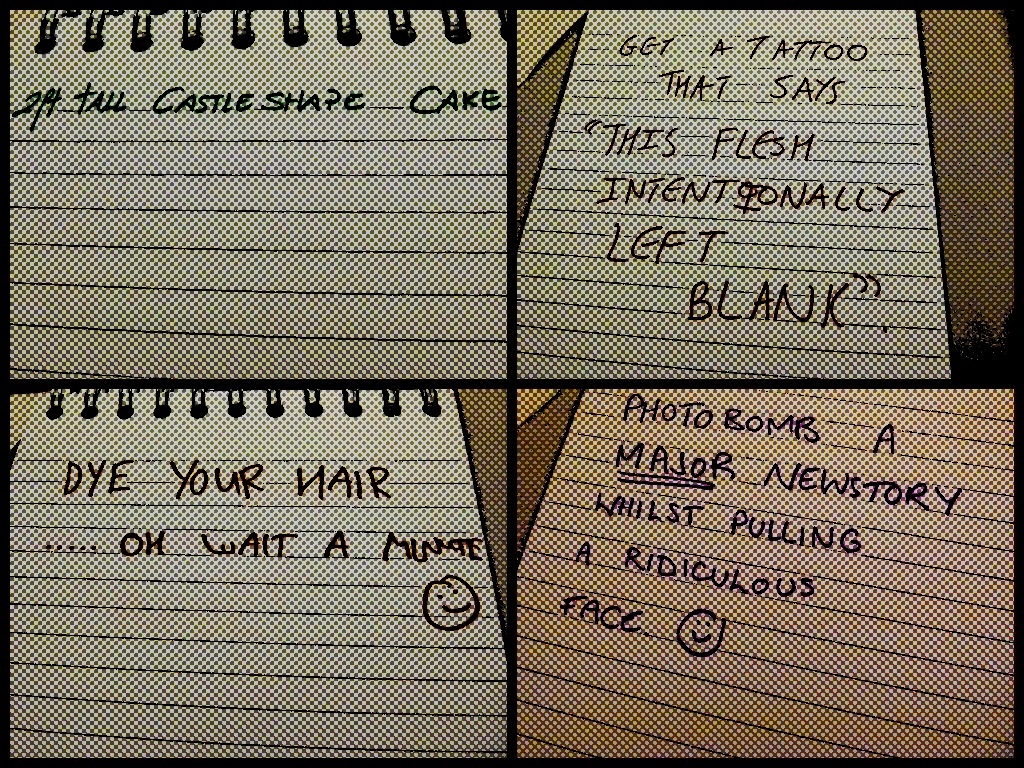 2ft TALL CASTLE SHAPE CAKE
GET A TATTOO
THAT SAYS
"THIS FLESH
INTENTIONALLY
LEFT
BLANK".
DYE YOUR HAIR
..... OH WAIT A MINUTE
PHOTOBOMB A
MAJOR NEWSTORY
WHILST PULLING
A RIDICULOUS
FACE